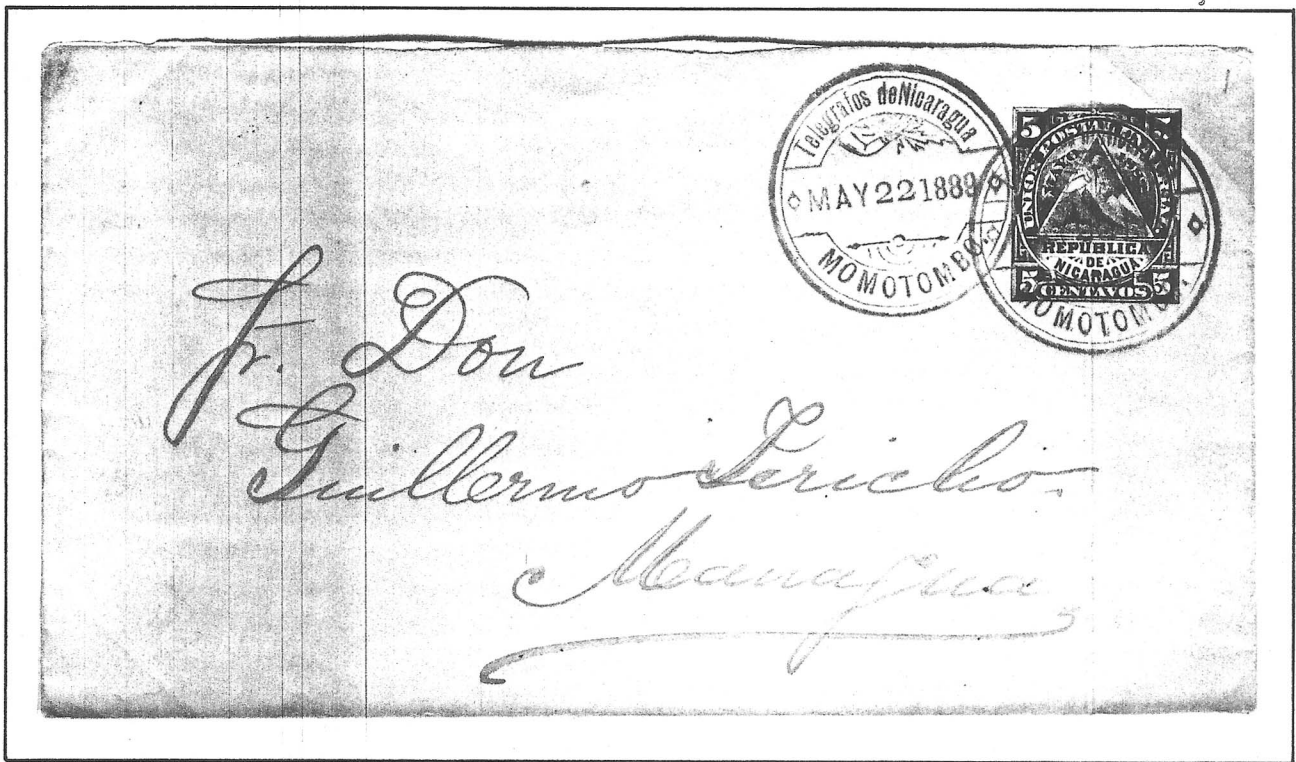 Telégrafos de Nicaragua
MAY 22 1889
MOMOTOMBO.
5 5
UNION POSTAL UNIVERSAL
REPUBLICA
DE
NICARAGUA
5 CENTAVOS 5
MOMOTOMBO.
Sr. Don
Guillermo Jericho.
Managua